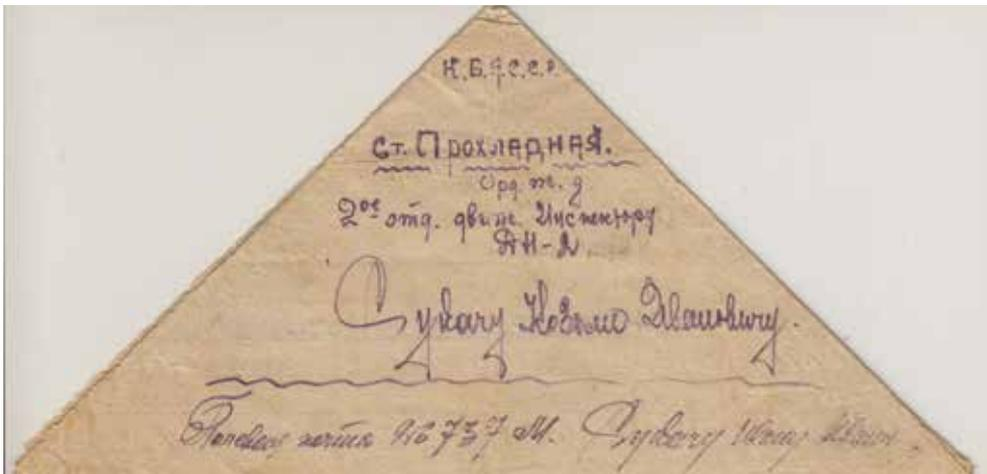 К.Б.А.С.С.Р.
ст. Прохладная.
Орд. ж. д
2ое отд. движ. Инженеру
ДН-2.
Сукачу Козьмо Ивановичу.
Полевая почта №737 М. Сукачу Ивану